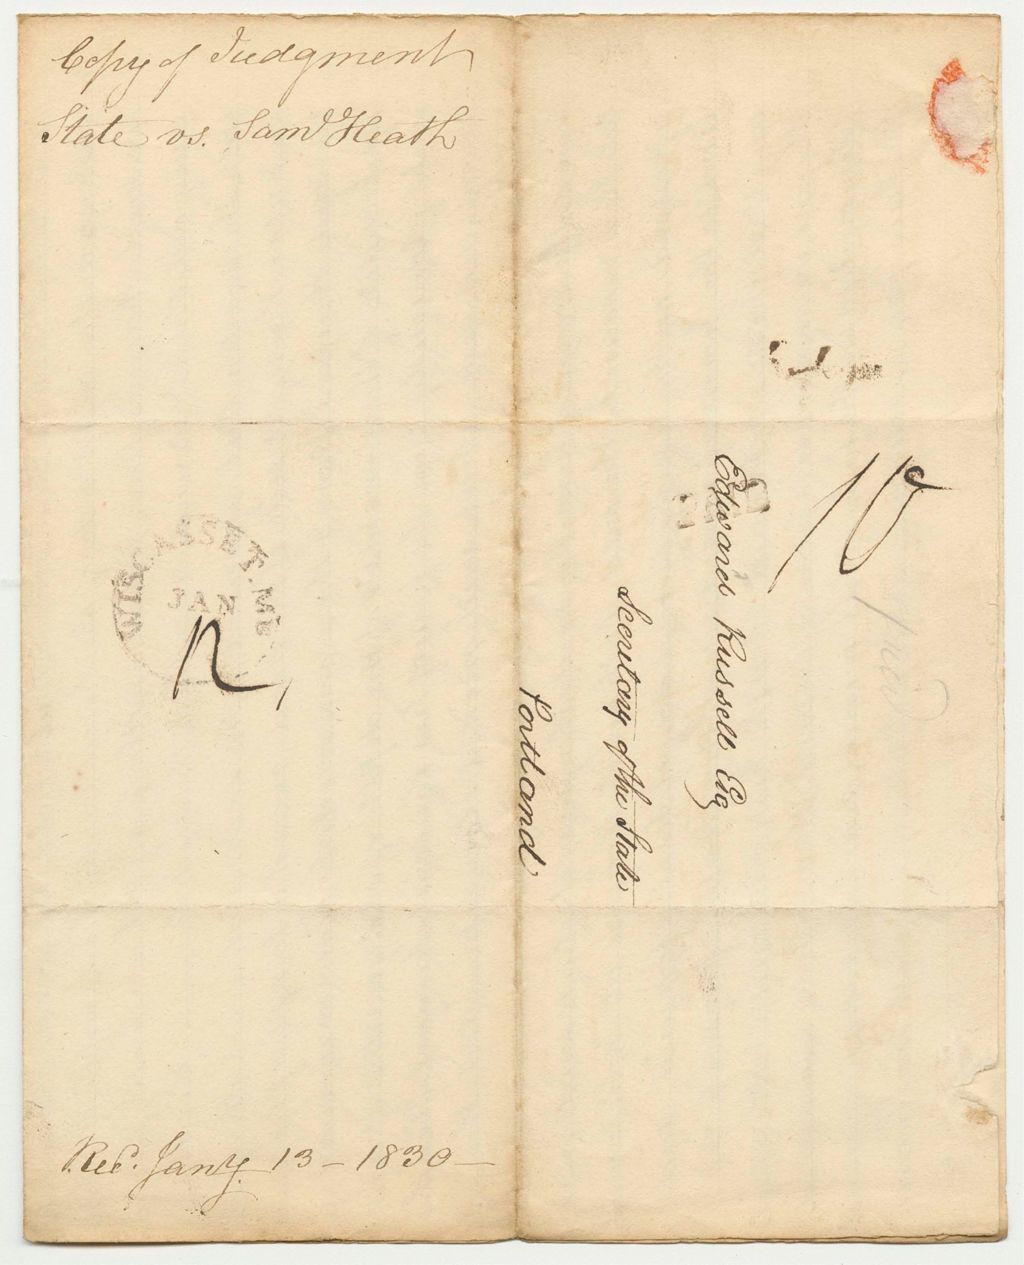 Copy of Judgment
State vs. Saml Heath
WISCASSET. ME
JAN
12
10
PAID
Edward Russell Esq
Secretary of the State
Portland
Rec. Jany. 13 - 1830 -